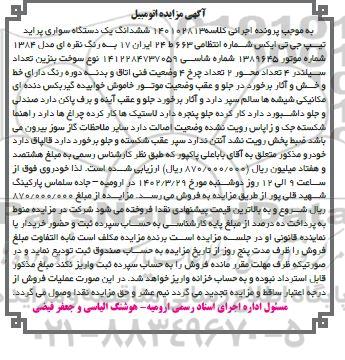 آگهی مزایده اتومبیل
به موجب پرونده اجرائی کلاسه ۱۴۰۱۰۲۸۱۳ ششدانگ یک دستگاه سواری پراید
تیپ جی تی ایکس شماره انتظامی ۶۶۳ ط ۲۴ ایران ۱۷ به رنگ نقره ای مدل ۱۳۸۴
شماره موتور ۱۳۸۹۶۴۵ شماره شاسی ۱۴۱۲۲۸۴۷۳۷۰۵۹ نوع سوخت بنزین تعداد
سیلندر ۴ تعداد محور ۲ تعداد چرخ ۴ وضعیت فنی اتاق و بدنه دوره رنگ دارای خط
و خش و آثار برخورد در جلو و عقب وضعیت موتور خاموش خوابیده گیربکس دنده ای
مکانیکی شیشه ها سالم سپر دارد و آثار برخورد جلو و عقب آینه و برف پاکن دارد صندلی
و جلو داشبورد دارد کار کرده جلو پنجره دارد لاستیک ها کار کرده چراغ ها دارد راهنما
شکسته جک و زاپاس رویت نشده وضعیت اصالت دارد سایر ملاحظات گاز سوز بیرون می
باشد ضبط پخش رویت نشد آنتن ندارد سپر عقب شکسته و جلو برخورد دارد قالپاق دارد
خودرو مذکور متعلق به آقای باباعلی پاکپور که طبق نظر کارشناس رسمی به مبلغ هشتصد
و هفتاد میلیون ریال (۸۷۰/۰۰۰/۰۰۰ ریال) ارزیابی شده است. لذا خودروی فوق از
ساعت ۹ الی ۱۲ روز دوشنبه مورخ ۱۴۰۲/۳/۲۹ در ارومیه – جاده سلماس پارکینگ
شهید قلی پور از طریق مزایده به فروش می رسد. مزایده از مبلغ ۸۷۰/۰۰۰/۰۰۰
ریال شروع و به بالاترین قیمت پیشنهادی نقدا فروخته می شود شرکت در مزایده منوط
به پرداخت ده درصد از مبلغ پایه کارشناسی به حساب سپرده ثبت و حضور خریدار یا
نماینده قانونی او در جلسه مزایده است برنده مزایده مکلف است مابه التفاوت مبلغ
فروش را ظرف مدت پنج روز از تاریخ مزایده به حساب صندوق ثبت تودیع نماید و در
صورتیکه ظرف مهلت مقرر مانده فروش را به حساب سپرده ثبت واریز نکند مبلغ مذکور
قابل استرداد نبوده و به حساب خزانه واریز خواهد شد. در این صورت عملیات فروش از
درجه اعتبار ساقط و مزایده تجدید می گردد نیم عشر و حق مزایده نقدا وصول می گردد.
مسئول اداره اجرای اسناد رسمی ارومیه- هوشنگ الیاسی و جعفر فیضی